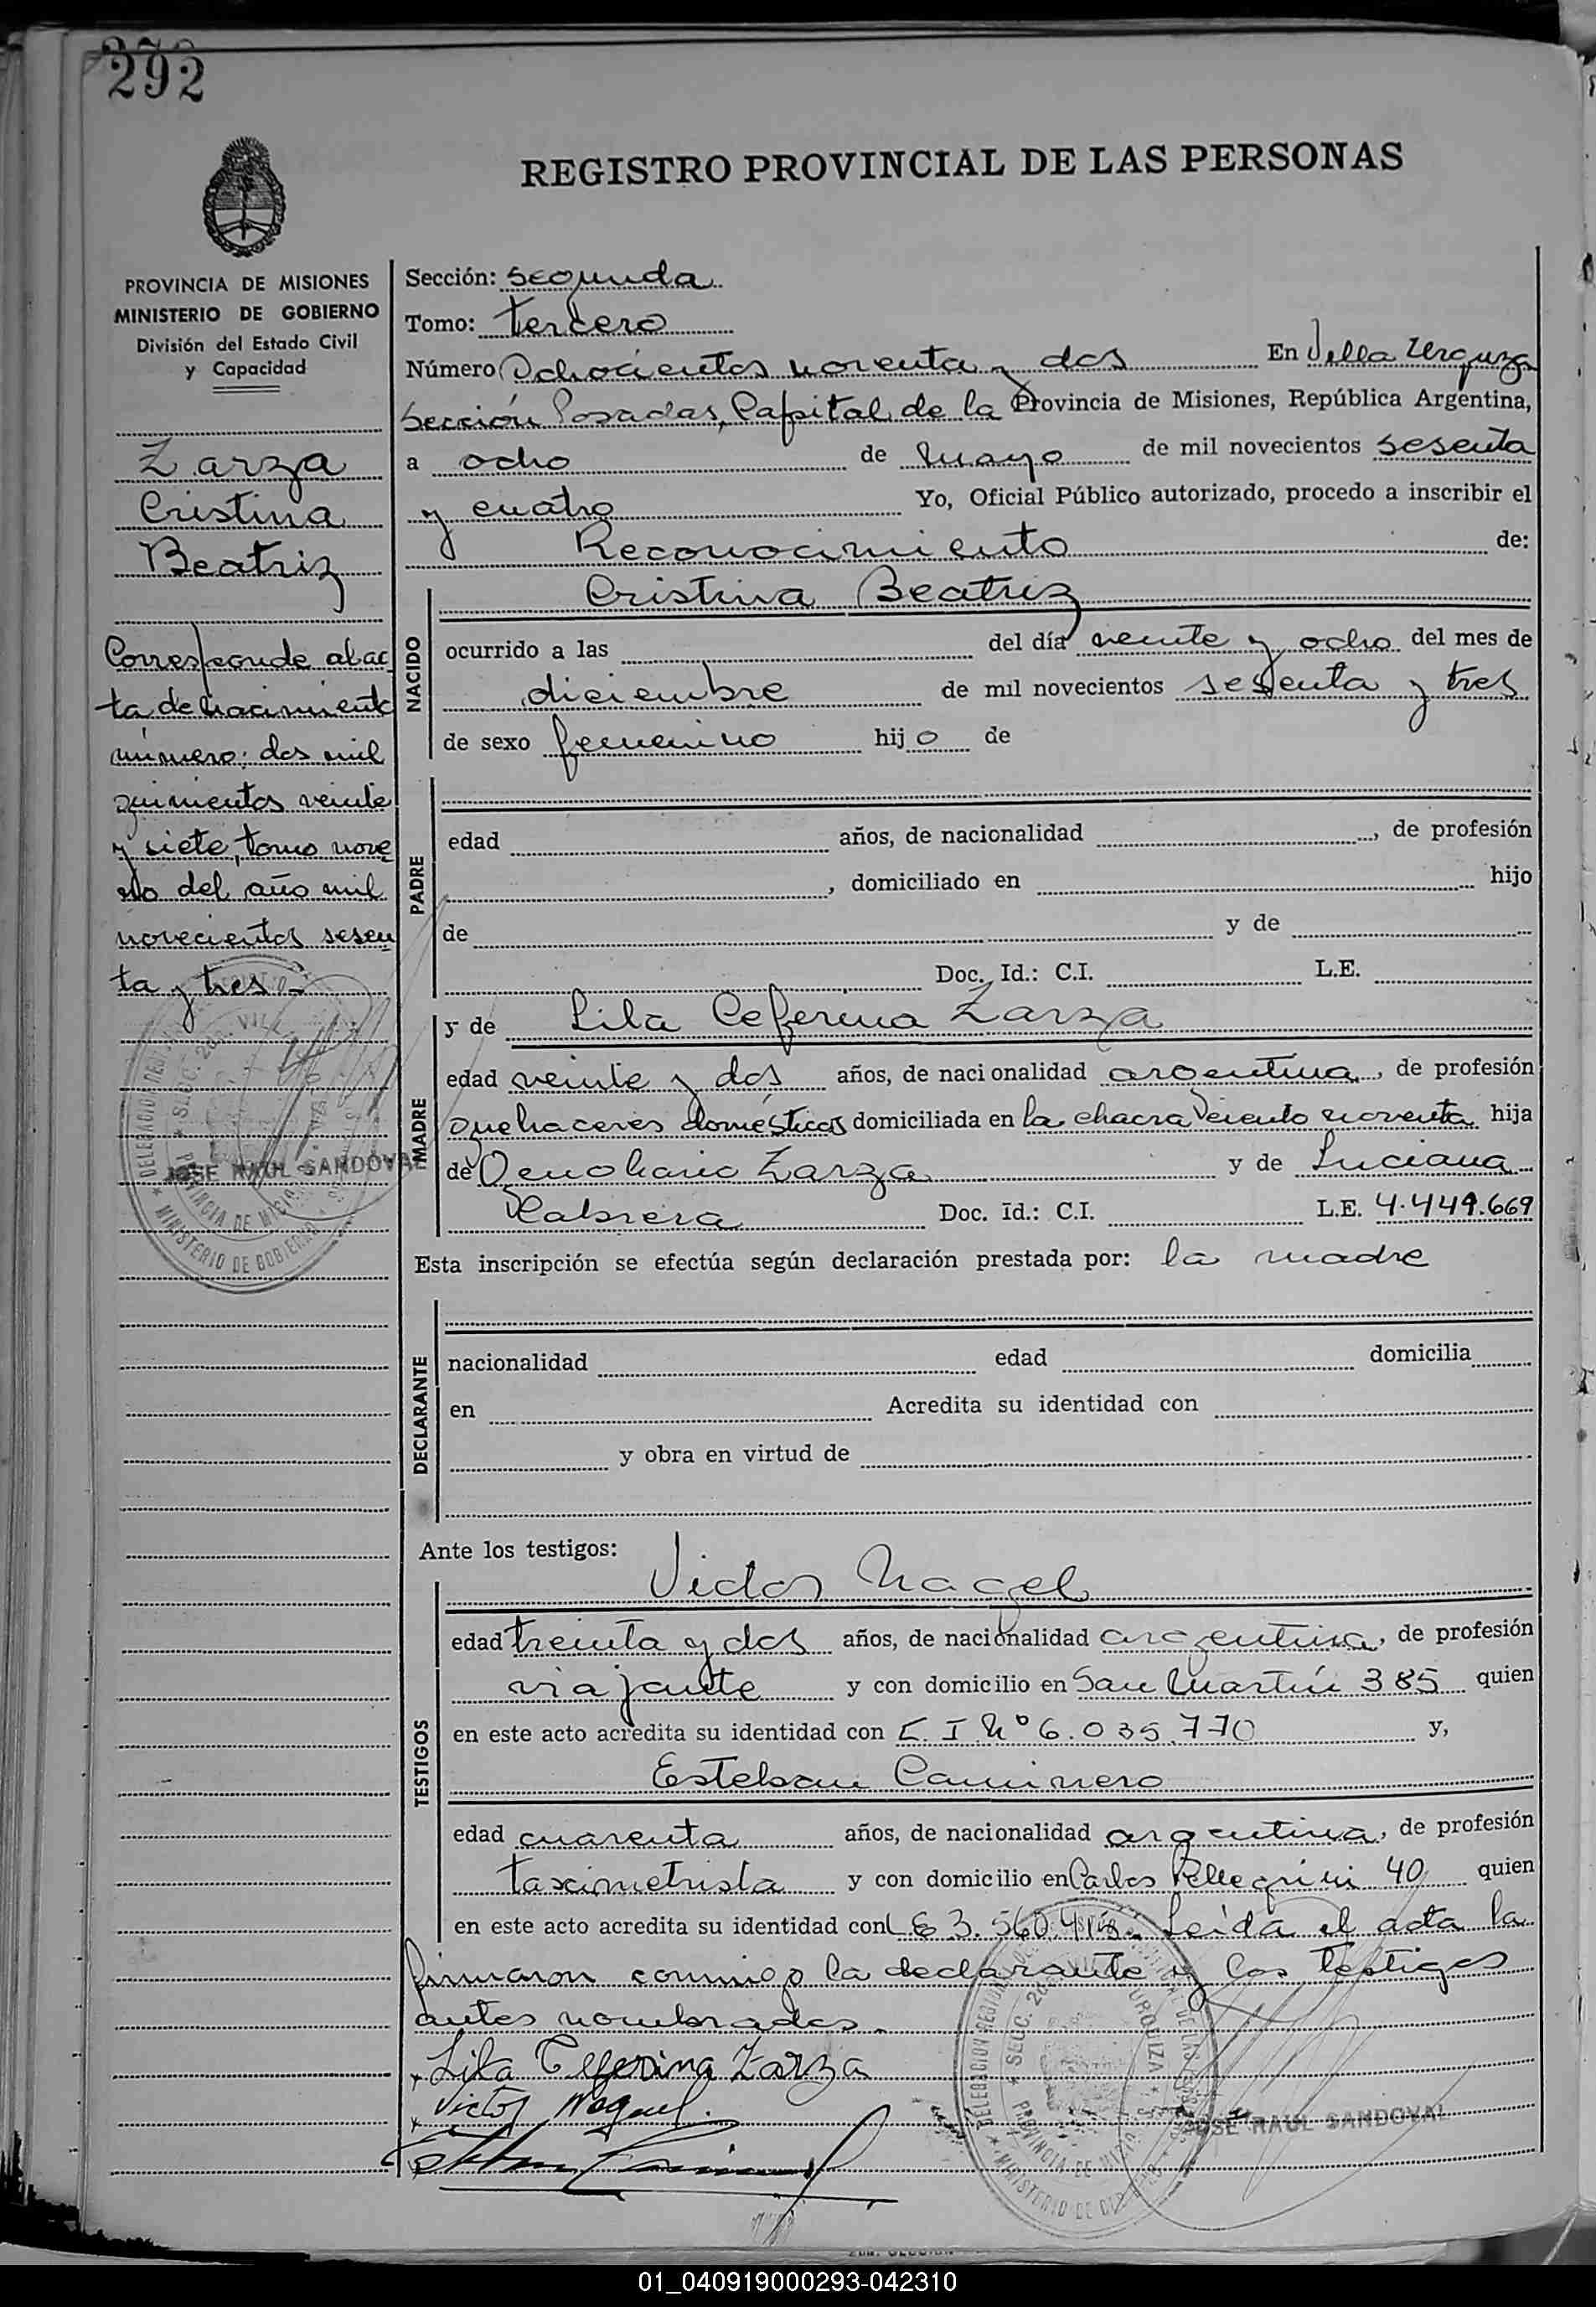 292
REGISTRO PROVINCIAL DE LAS PERSONAS
PROVINCIA DE MISIONES
MINISTERIO DE GOBIERNO
División del Estado Civil
y Capacidad
Zarza
Cristina
Beatriz
Corresponde al ac
ta de nacimiento
número: dos mil
quinientos veinte
y siete, tomo nove
no del año mil
novecientos sesen
ta y tres.-
JOSE RAUL SANDOVAL
Sección: segunda
Tomo: tercero
Número Ochocientos noventa y dos En Villa Urquiza
Sección Posadas, Capital de la Provincia de Misiones, República Argentina,
a ocho de Mayo de mil novecientos sesenta
y cuatro Yo, Oficial Público autorizado, procedo a inscribir el
Reconocimiento de:
NACIDO
Cristina Beatriz
ocurrido a las del día veinte y ocho del mes de
diciembre de mil novecientos sesenta y tres
de sexo femenino hijo de
PADRE
edad años, de nacionalidad , de profesión
, domiciliado en hijo
de y de
Doc. Id.: C.I. L.E.
MADRE
y de Lila Ceferina Zarza
edad veinte y dos años, de nacionalidad argentina, de profesión
quehaceres domésticos domiciliada en la chacra ciento noventa hija
de Zarza y de Luciana
Cabrera Doc. Id.: C.I. L.E. 4.449.669
Esta inscripción se efectúa según declaración prestada por: la madre
DECLARANTE
nacionalidad edad domicilia
en Acredita su identidad con
y obra en virtud de
Ante los testigos:
TESTIGOS
Victor Nagel
edad treinta y dos años, de nacionalidad argentina, de profesión
viajante y con domicilio en San Martín 385 quien
en este acto acredita su identidad con C. I. Nº 6.035.770 y,
Esteban Caminero
edad cuarenta años, de nacionalidad argentina, de profesión
taximetrista y con domicilio en Carlos Pellegrini 40 quien
en este acto acredita su identidad con L E 3.560. Leida el acta la
firmaron conmigo la declarante y los testigos
antes nombrados.
Lila Ceferina Zarza
Victor Nagel.
JOSE RAUL SANDOVAL
01_040919000293-042310